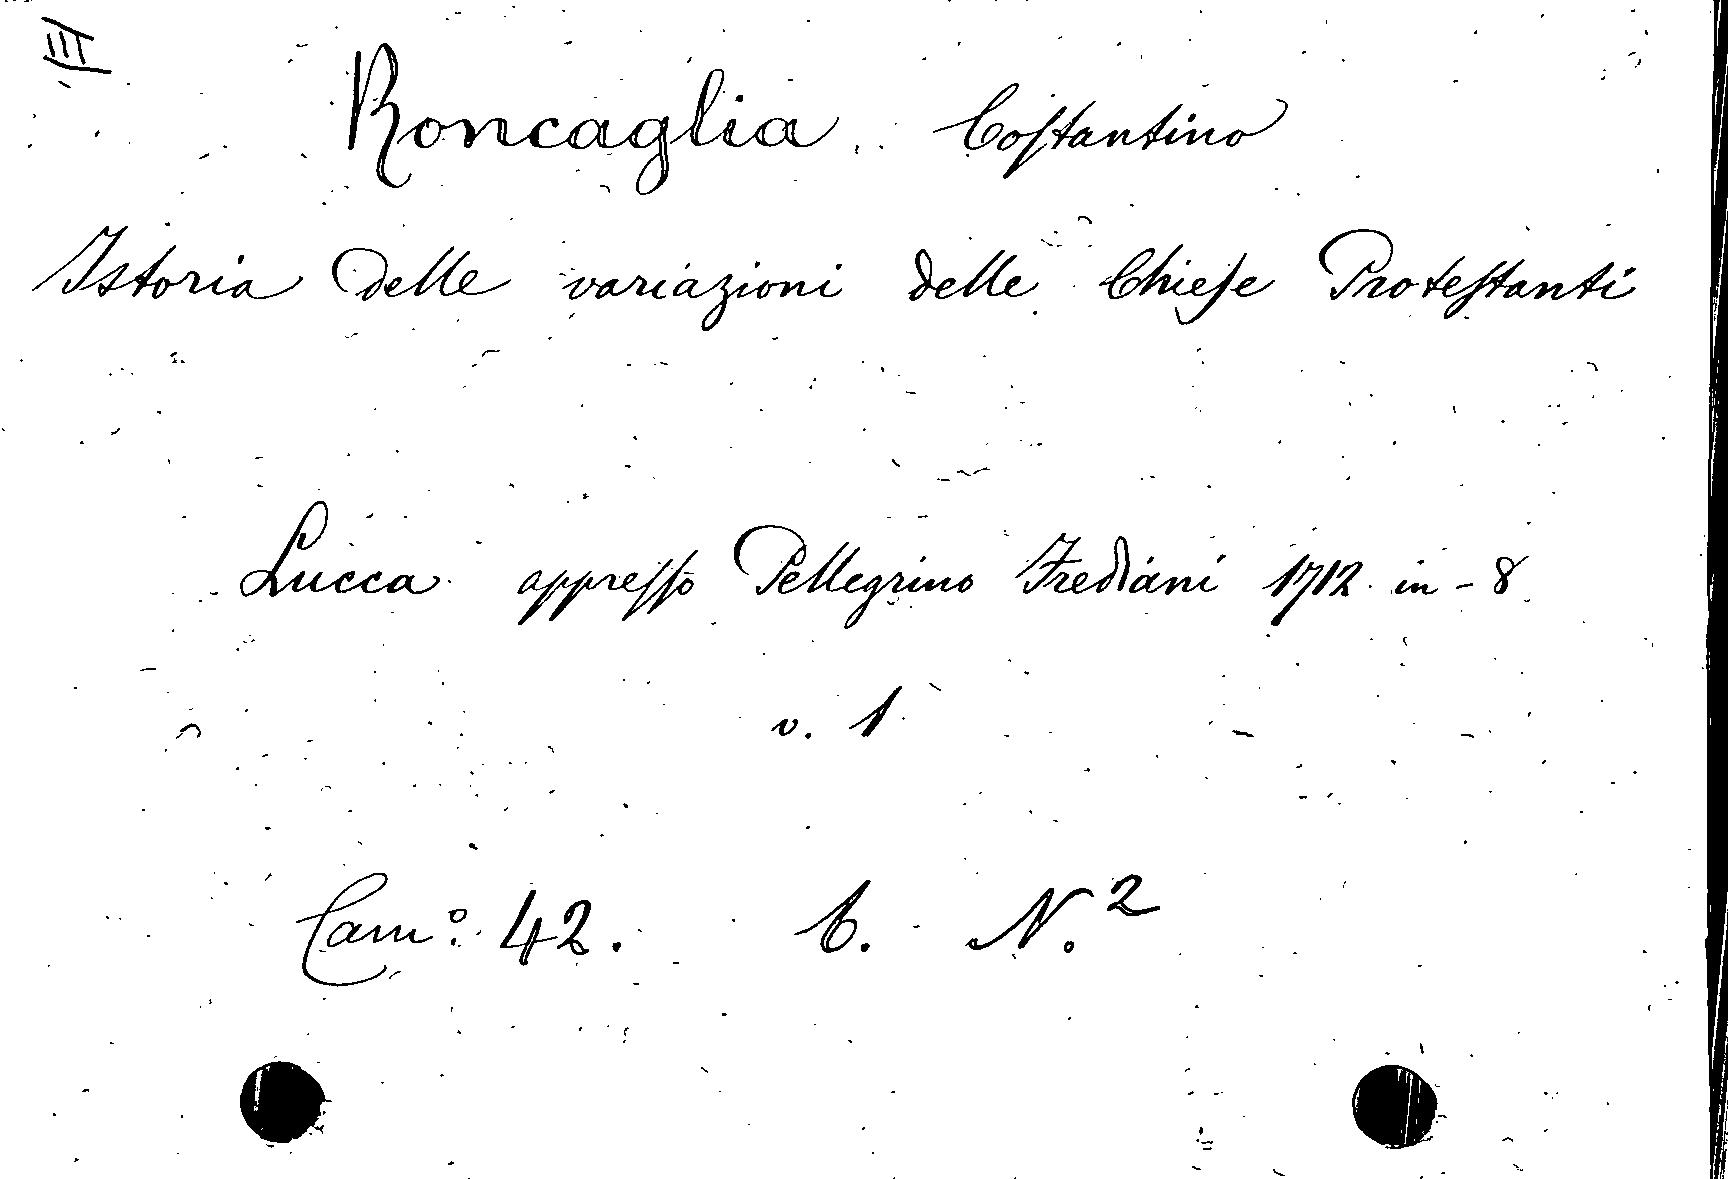 III
Roncaglia Coſtantino
Istoria delle variazioni delle Chieſe Proteſtanti
Lucca appreſſo Pellegrino Frediani 1712 in-8
v. 1
Cam:º 42. C. N.2